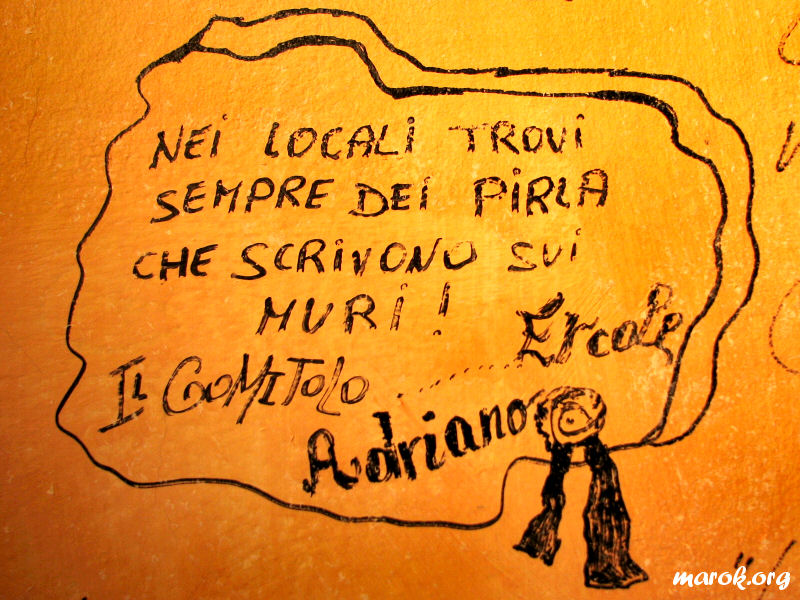 NEI LOCALI TROVI
SEMPRE DEI PIRLA
CHE SCRIVONO SUI
MURI!
Ercole
IL GOMITOLO ........
Adriano
marok.org